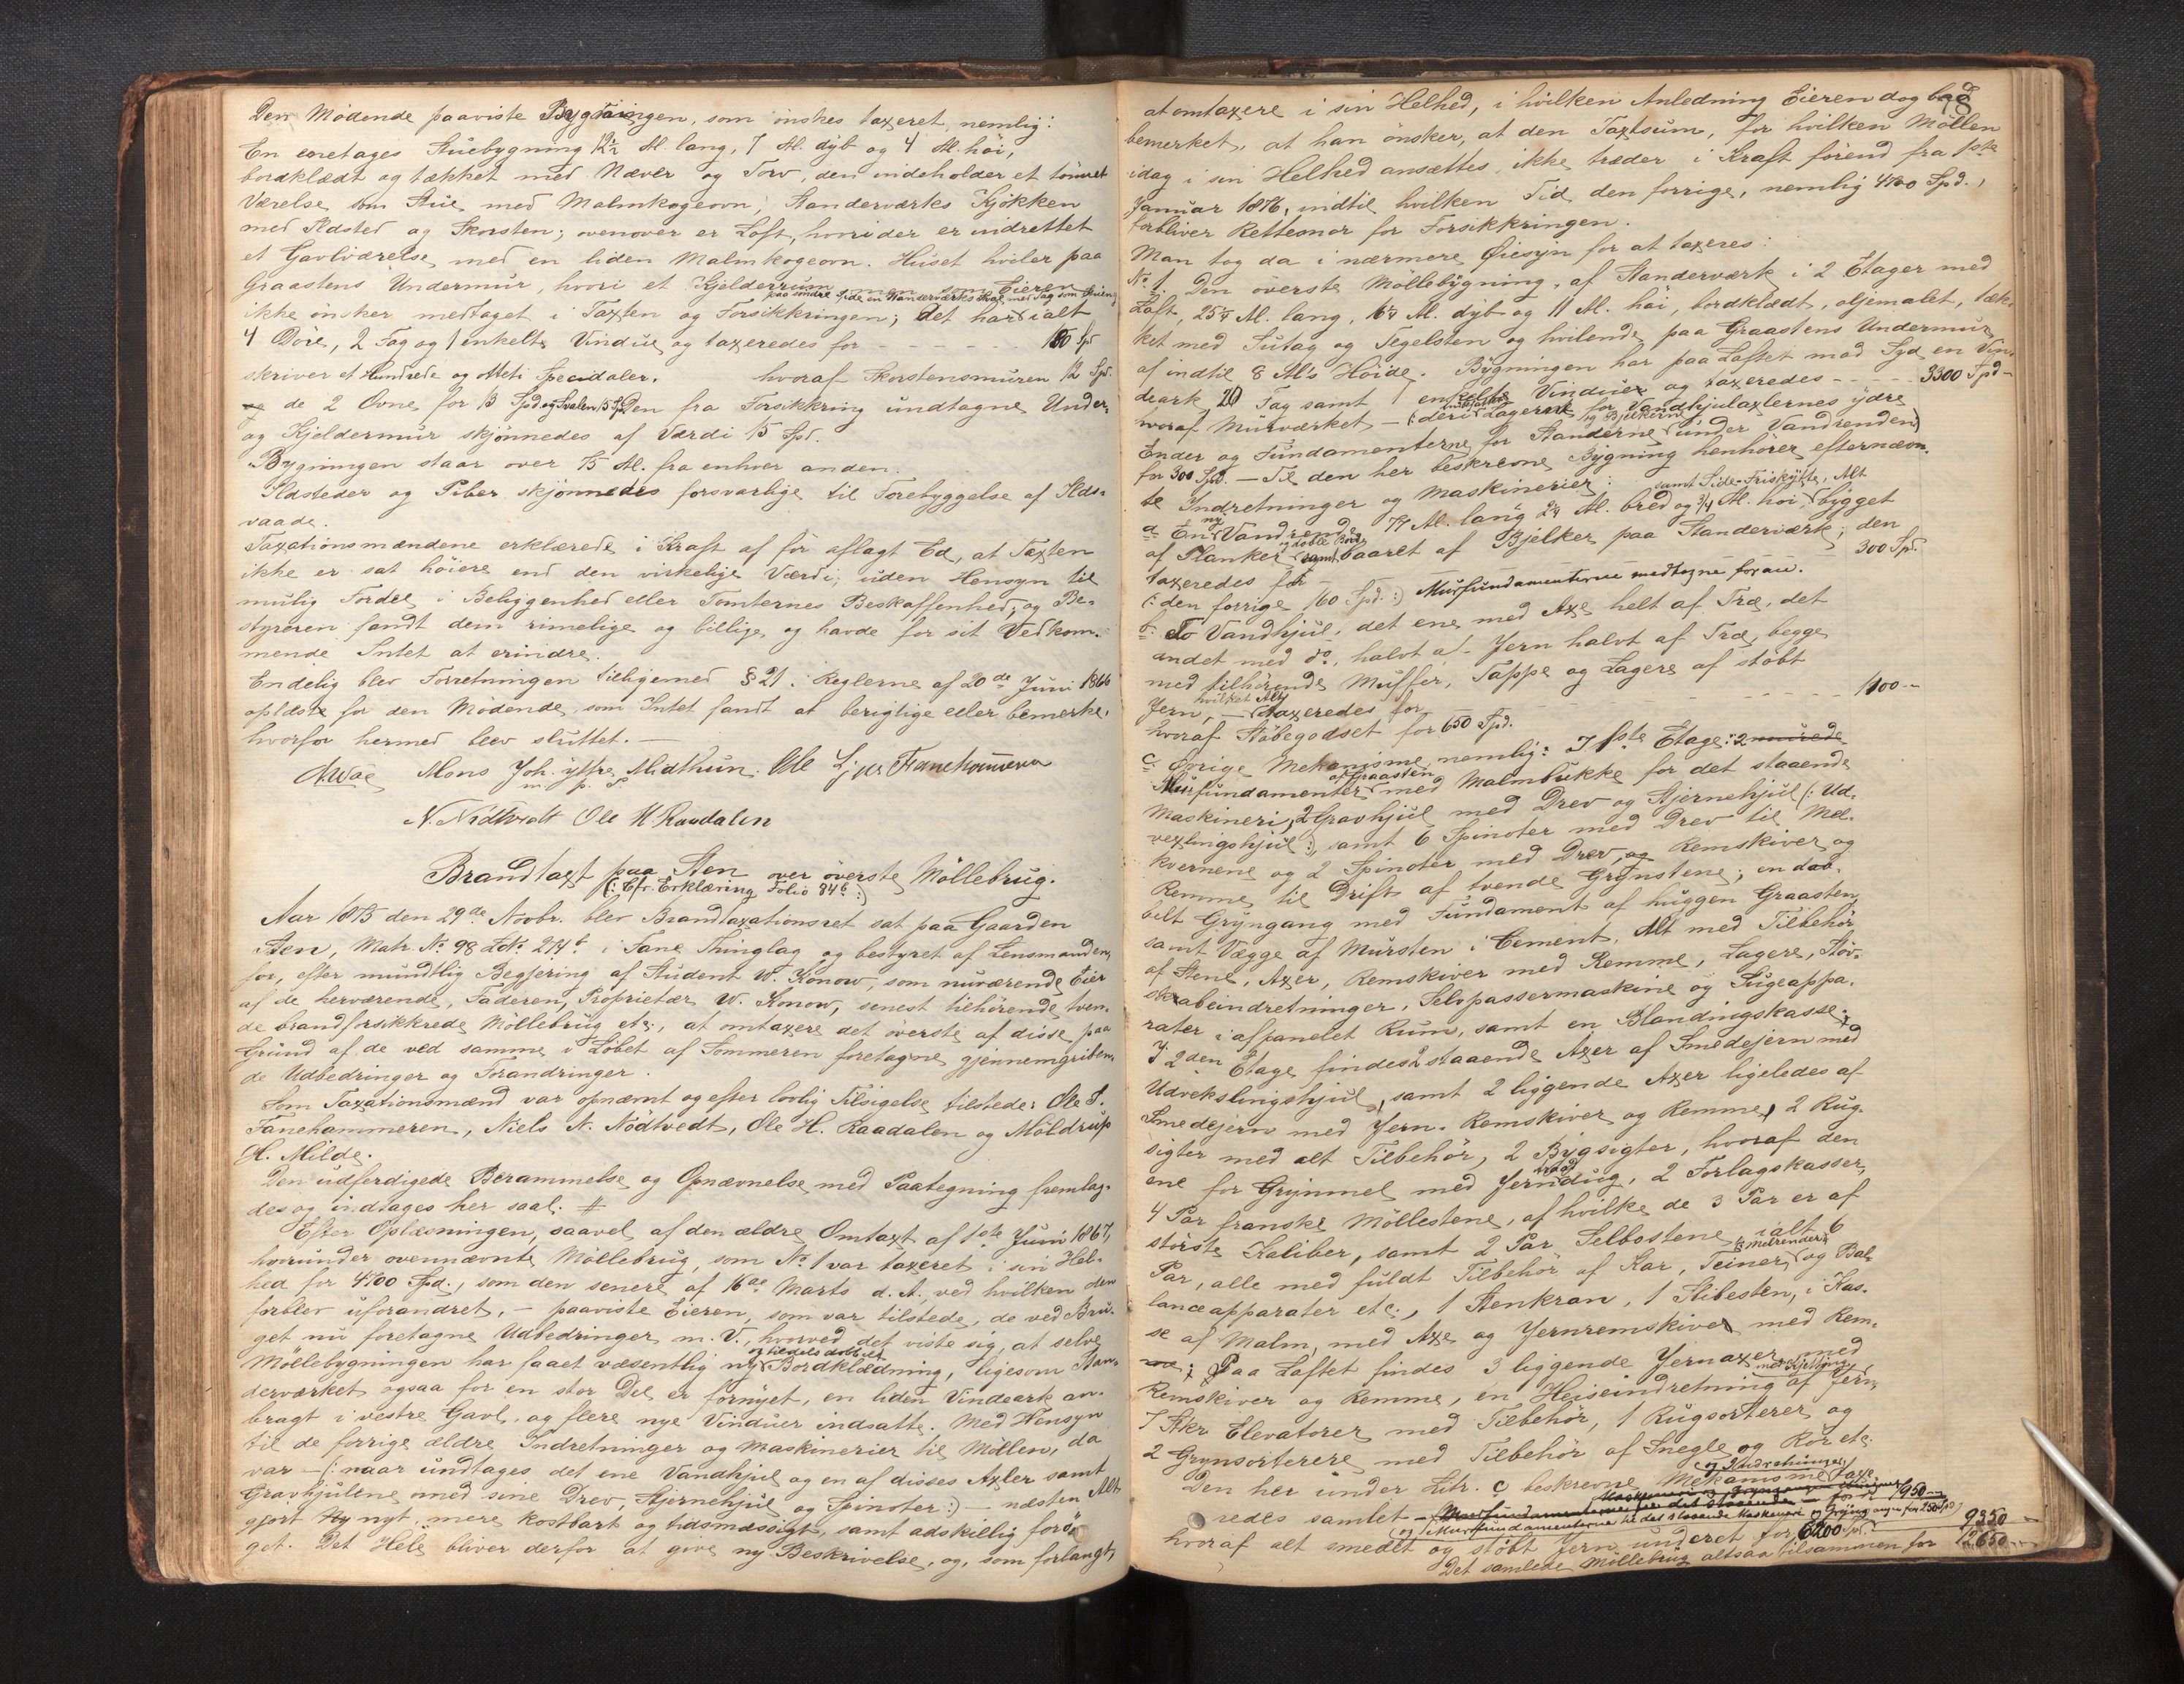 Den Mødende paaviste Bygningen, som ønskes taxeret, nemlig:
En eenetages Stuebygning 12½ Al. lang, 7 Al. dyb og 4 Al. høi,
bordklædt og tækket med Næver og Torv, den indeholder et tømret
Værelse som Stue med Malmkogeovn, Standerværks Kjøkken
med Ildsted og Skorsten; ovenover er Loft, hvori der er indrettet
et Gavlværelse med en liden Malmkogeovn. Huset hviler paa
Graastens Undermur, hvori et Kjelderrum, som Eieren
paa søndre Side en Standerværks Skal med Tag som Stuen;
ikke ønsker medtaget i Taxten og Forsikkringen; det har ialt
4 Døre, 2 Fag og 1 enkelt Vindue og taxeredes for - - - - - 180 Spd
skriver et Hundrede og otteti Specidaler. hvoraf Skorstensmuren 12 Spd.
og de 2 Ovne for 13 Spd. og Svalen 15 Spd. Den fra Forsikkring undtagne Under-
og Kjeldermur skjønnedes af Værdi 15 Spd.
Bygningen staar over 75 Al. fra enhver anden.
Ildsteder og Piber skjønnedes forsvarlige til Forebyggelse af Ilds-
vaade.
Taxationsmændene erklærede i Kraft af før aflagt Ed, at Taxten
ikke er sat høiere end den virkelige Værdi, uden Hensyn til
mulig Fordel i Beliggenhed eller Tomternes Beskaffenhed; og Be-
styreren fandt dem rimelige og billige, og havde for sit Vedkom-
mende Intet at erindre.
Endelig blev Forretningen tilligemed § 21 i Reglerne af 20de Juni 1866
oplæst for den Mødende, som Intet fandt at berigtige eller bemerke,
hvorfor hermed blev sluttet. —
AWae Mons Joh. ytre Midthun. Ole L: Fanehammeren
m. p. P.
N. Nødtvedt Ole H Raadalen
Brandtaxt paa Sten over øverste Møllebrug.
(: Cfr. Erklæring Folio 84b :)
Aar 1875 den 29de Novbr. blev Brandtaxationsret sat paa Gaarden
Sten, Matr. No. 98 LNo. 274b i Fane Thinglag og bestyret af Lensmanden,
for, efter mundtlig Begjering af Student W. Konow, som nuværende Eier
af de herværende, Faderen, Proprietær W. Konow, senest tilhørende tven-
de brandforsikkrede Møllebrug etc., at omtaxere det øverste af disse paa
Grund af de ved samme i Løbet af Sommeren foretagne gjennemgriben-
de Udbedringer og Forandringer.
Som Taxationsmænd var opnævnt og efter lovlig Tilsigelse tilstede: Ole J.
Fanehammeren, Niels N. Nødtvedt, Ole H. Raadalen og Møldrup
H. Milde.
Den udferdigede Berammelse og Opnævnelse med Paategning fremlag-
des og indtages her saal: #
Efter Oplæsningen, saavel af den ældre Omtaxt af 1ste Juni 1867,
hvorunder ovennævnte Møllebrug, som No. 1 var taxeret i sin Hel-
hed for 4700 Spd., som den senere af 16de Marts d. A., ved hvilken den
forblev uforandret, — paaviste Eieren, som var tilstede, de ved Bru-
get nu foretagne Udbedringer m. V., hvorved det viste sig, at selve
og tildels dobbelt
Møllebygningen har faaet væsentlig ny Bordklædning, ligesom Stan-
derværket ogsaa for en stor Del er fornyet, en liden Vindeark an-
bragt i vestre Gavl, og flere nye Vinduer indsatte. Med Hensyn
til de forrige ældre Indretninger og Maskinerier til Møllen, da
var — (: naar undtages det ene Vandhjul og en af disses Axler samt
Gravhjulene med sine Drev, Stjernehjul og Spinoter :) — næsten Alt
gjort nyt, mere kostbart og tidsmæssigt, samt adskillig forø-
get. Det Hele bliver derfor at give ny Beskrivelse, og, som forlangt,
78
at omtaxere i sin Helhed, i hvilken Anledning Eieren dog bad
bemerket, at han ønsker, at den Taxtsum, for hvilken Møllen
idag i sin Helhed ansættes, ikke træder i Kraft førend fra 1ste
Januar 1876, indtil hvilken Tid den forrige, nemlig 4700 Spd.,
forbliver Rettesnor for Forsikkringen.
Man tog da i nærmere Øiesyn for at taxeres:
No. 1. Den øverste Møllebygning, af Standerværk i 2 Etager med
Loft, 25¼ Al. lang, 16¼ Al. dyb og 11 Al. høi, bordklædt, oljemalet, tæk-
ket med Sutag og Tegelsten og hvilende paa Graastens Undermur
af indtil 8 Al's Høide. Bygningen har paa Loftet mod Syd en Vin-
deark, 20 Fag samt 1 enkelte Vinduer og taxeredes - - - - 3300 Spd -
hvoraf Murværket — (: deri indbefattet Lagerne for Vandhjulaxlernes ydre
og Bjelkerne
Ender og Fundamenterne for Standerne under Vandrenden)
for 300 Spd. — Til den her beskrevne Bygning henhører efternævn-
te Indretninger og Maskinerier: samt Side-Friskytte, Alt
a En ny Vandrende 77 Al. lang 2¼ Al. bred og ¾ Al. høi, bygget
og doble Bord
af Planker samt baaret af Bjelker paa Standerværk; den
taxeredes for - - - - - 300 Spd.
(: den forrige 160 Spd. :) Murfundamenterne medtagne foran.
b: To Vandhjul, det ene med Axe helt af Træ, det
andet med do. halvt af Jern halvt af Træ, begge
med tilhørende Muffer, Tappe og Lagere af støbt
hvilket Alt
Jern, — taxeredes for - - - - - 1100 -
hvoraf Støbegodset for 650 Spd.
c. øvrige Mekanisme, nemlig: I 1ste Etage: 2 murede
af Graasten
Murfundamenter med Malmbukke for det staaende
Maskineri, 2 Gravhjul med Drev og Stjernehjul (: Ud-
vexlingshjul :), samt 6 Spinoter med Drev til Mel-
kvernene og 2 Spinoter med Drev, og Remskiver og
Remme til Drift af tvende Grynstene; en dob-
belt Gryngang med Fundament af huggen Graasten
samt Vægge af Mursten i Cement, Alt med Tilbehør
af Stene, Axer, Remskiver med Remme, Lagere, Støv-
skrabeindretninger, Selvpassermaskine og Sugeappa-
rater i afpanelet Rum, samt en Blandingskasse;
I 2den Etage findes 2 staaende Axer af Smedejern med
Udvekslingshjul, samt 2 liggende Axer ligeledes af
Smedejern med Jern-Remskiver og Remme, 2 Rug-
sigter med alt Tilbehør, 2 Bygsigter, hvoraf den
traad
ene for Grynmel med Jerndug, 2 Forlagskasser,
4 Par franske Møllestene, af hvilke de 3 Par er af
største Kaliber, samt 2 Par Selbostene, ialt 6
Melrender
Par, alle med fuldt Tilbehør af Kar, Teiner og Bal-
lanceapparater etc., 1 Stenkran, 1 Slibesten, i Kas-
se af Malm, med Axe og Jernremskive med Rem-
me; Paa Loftet findes 3 liggende Jernaxer med
med Kjetting
Remskiver og Remme, en Heiseindretning af Jern,
7 Stkr. Elevatorer med Tilbehør, 1 Rugsorterer og
2 Grynsorterere med Tilbehør af Snegle og Rør etc.
og Indretninger
Den her under Litr. c beskrevne Mekanisme taxe-
redes samlet - - - for 7950 -
(og Murfundamenterne til det staaende Maskineri og Gryngangen for 250 Spd) 9350 -
hvoraf alt smedet og støbt Jern vurderet for 6200 Spd.
Det samlede Møllebrug altsaa tilsammen for 12650 -